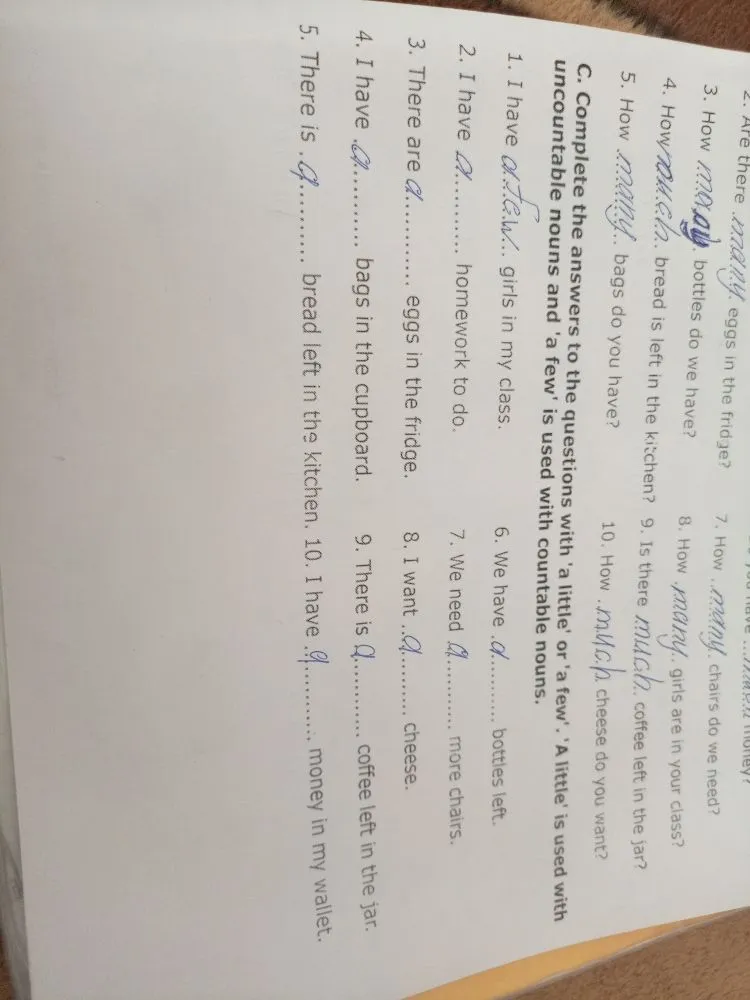 2. Are there .many. eggs in the fridge?
3. How many. bottles do we have? 7. How ..many. chairs do we need?
4. How much.. bread is left in the kitchen? 8. How .many.. girls are in your class?
5. How .many.. bags do you have? 9. Is there much.. coffee left in the jar?
10. How ..much cheese do you want?
C. Complete the answers to the questions with 'a little' or 'a few'. 'A little' is used with
uncountable nouns and 'a few' is used with countable nouns.
1. I have a few... girls in my class. 6. We have .a.......... bottles left.
2. I have a........... homework to do. 7. We need a........... more chairs.
3. There are a............ eggs in the fridge. 8. I want ..a.......... cheese.
4. I have .a........... bags in the cupboard. 9. There is a............ coffee left in the jar.
5. There is .a.......... bread left in the kitchen. 10. I have ..a............ money in my wallet.